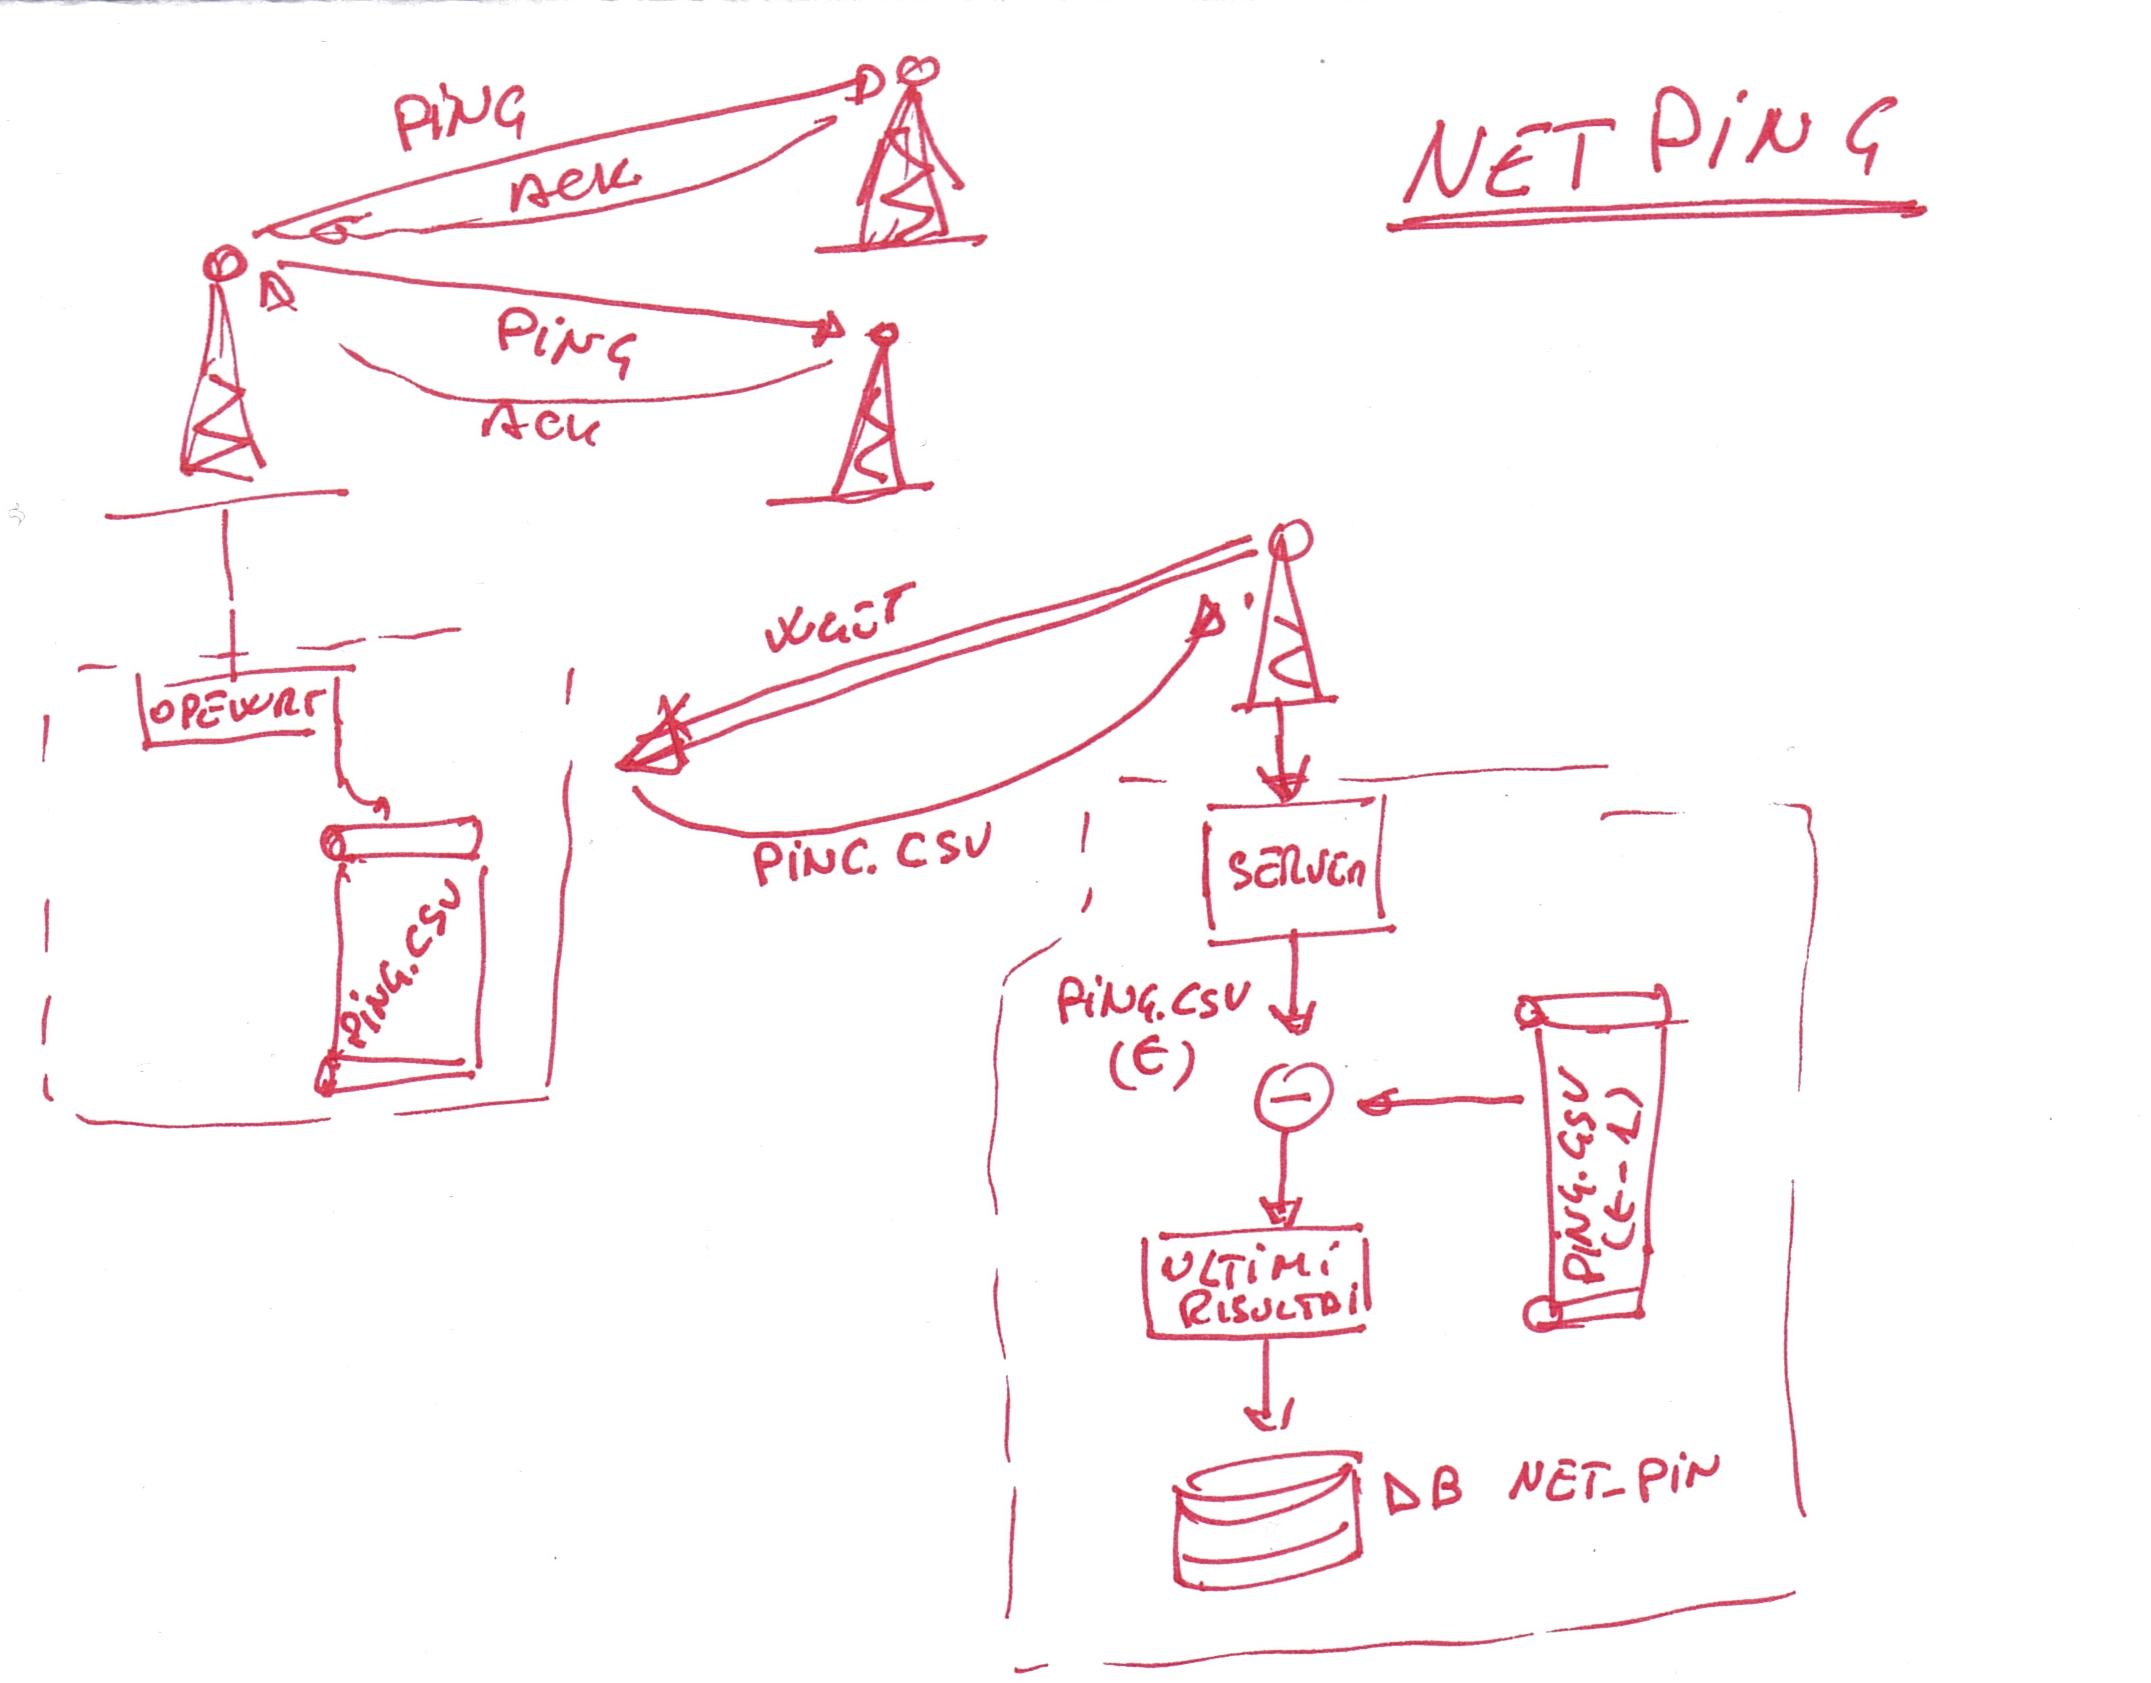 NETPING
PING
ACK
PING
ACK
WGET
OPEWRT
PING.CSV
PINC.CSV
SERVER
PING.CSV
(t)
PING.CSV
(t-1)
ULTIMI
RISULTATI
DB NET_PIN